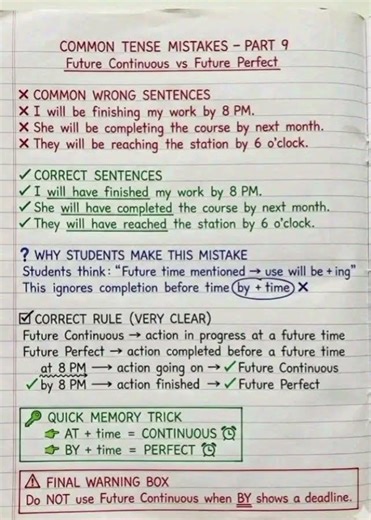 COMMON TENSE MISTAKES – PART 9
Future Continuous vs Future Perfect
✗ COMMON WRONG SENTENCES
✗ I will be finishing my work by 8 PM.
✗ She will be completing the course by next month.
✗ They will be reaching the station by 6 o'clock.
✓ CORRECT SENTENCES
✓ I will have finished my work by 8 PM.
✓ She will have completed the course by next month.
✓ They will have reached the station by 6 o'clock.
? WHY STUDENTS MAKE THIS MISTAKE
Students think: "Future time mentioned → use will be + ing"
This ignores completion before time (by + time) ✗
☑ CORRECT RULE (VERY CLEAR)
Future Continuous → action in progress at a future time
Future Perfect → action completed before a future time
at 8 PM → action going on → ✓ Future Continuous
✓ by 8 PM → action finished → ✓ Future Perfect
🔑 QUICK MEMORY TRICK
👉 AT + time = CONTINUOUS ⏰
👉 BY + time = PERFECT ⏰
⚠ FINAL WARNING BOX
Do NOT use Future Continuous when BY shows a deadline.